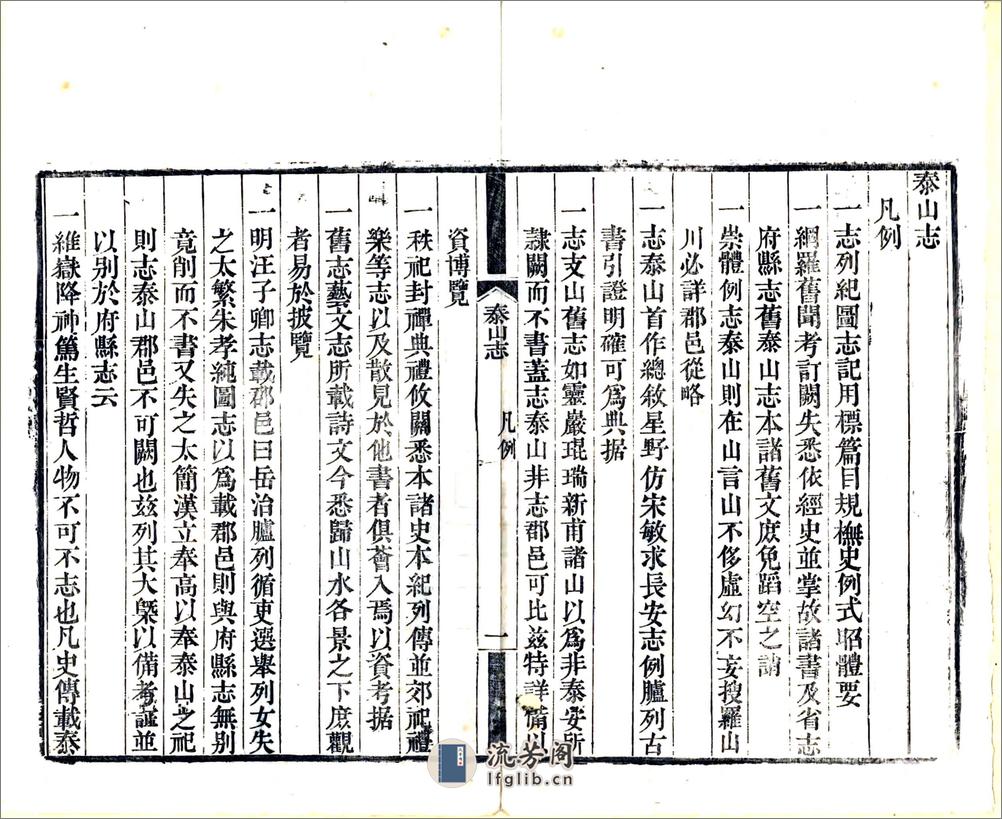 泰山志
凡例
一志列紀圖志記用標篇目規橅史例式昭體要
一網羅舊聞考訂闕失悉依經史並掌故諸書及省志
府縣志舊泰山志本諸舊文庶免蹈空之誚
一崇體例志泰山則在山言山不侈虛幻不妄搜羅山
川必詳郡邑從略
一志泰山首作總敘星野仿宋敏求長安志例臚列古
書引證明確可爲典据
一志支山舊志如靈巖琨瑞新甫諸山以爲非泰安所
隷闕而不書蓋志泰山非志郡邑可比茲特詳備以
泰山志
凡例
一
資博覽
一秩祀封禪典禮攸關悉本諸史本紀列傳並郊祀禮
樂等志以及散見於他書者俱薈入焉以資考据
一舊志藝文志所載詩文今悉歸山水各景之下庶觀
者易於披覽
一明汪子卿志載郡邑曰岳治臚列循吏選舉列女失
之太繁朱孝純圖志以爲載郡邑則與府縣志無別
竟削而不書又失之太簡漢立奉高以奉泰山之祀
則志泰山郡邑不可闕也茲列其大槩以備考證並
以别於府縣志云
一維嶽降神篤生賢哲人物不可不志也凡史傳載泰
流芳阁
lfglib.cn